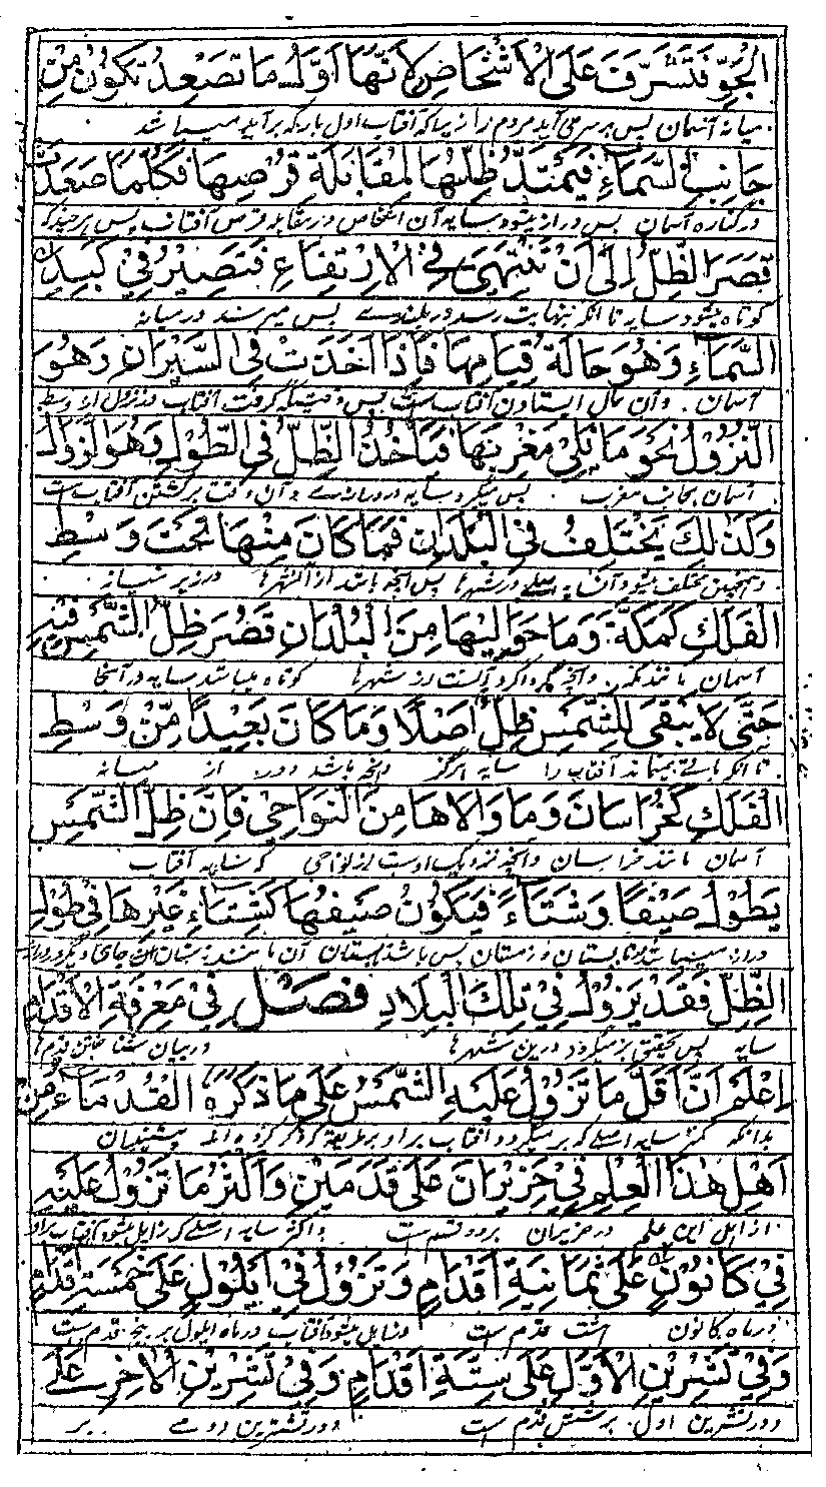 الْجَوِّ فَتَشَرَّفَ عَلَى الْأَشْخَاصِ لِأَنَّهَا أَوَّلُ مَا تَصْعَدُ تَكُوْنُ مِنْ
میانه آسمان پس برسر می آید مردم را زیرا که آفتاب اول بار که برآید میباشد
جَانِبِ السَّمَاءِ فَيَمْتَدُّ ظِلُّهَا لِمُقَابَلَةِ قُرْصِهَا فَكُلَّمَا صَعَدَتْ
در کناره آسمان پس دراز میشود سایه آن اشخاص در مقابله قرص آفتاب پس هرچند که
قَصَرَ الظِّلُّ إِلَى أَنْ تَنْتَهِيَ فِي الْاِرْتِفَاعِ فَتَصِيْرُ فِيْ كَبِدِ
کوتاه میشود سایه تا آنکه بنهایت رسد در بلندے پس میرسند در میانه
السَّمَاءِ وَهُوَ حَالَةُ قِيَامِهَا فَاِذَا أَخَذَتْ فِي السَّيْرَانِ وَهُوَ
آسمان و آن حال ایستادن آفتاب است پس وقتیکه گرفت آفتاب در نزول از وسط
النُّزُوْلُ نَحْوَ مَا يَلِيْ مَغْرِبَهَا فَيَأْخُذُ الظِّلُّ فِي الطُّوْلِ وَهُوَ الزَّوَالُ
آسمان بجانب مغرب پس میگیرد سایه در درازے و آن وقت برگشتن آفتاب است
وَكَذٰلِكَ يَخْتَلِفُ فِي الْبُلْدَانِ فَمَا كَانَ مِنْهَا تَحْتَ وَسْطِ
و همچنین مختلف میشود آن سایه اصلے در شهرها پس آنچه باشد از آن شهرها در زیر میانه
الْفَلَكِ كَمَكَّةَ وَمَا حَوَالَيْهَا مِنَ الْبُلْدَانِ قَصُرَ ظِلُّ الشَّمْسِ فِيْهِ
آسمان مانند مکه و آنچه گرداگرد آنست از شهرها کوتاه میباشد سایه در آنجا
حَتّٰى لَا يَبْقٰى لِلشَّمْسِ ظِلٌّ أَصْلًا وَمَا كَانَ بَعِيْدًا مِّنْ وَسْطِ
تا آنکه باقے نمیماند آفتاب را سایه هرگز و آنچه باشد دور از میانه
الْفَلَكِ كَخُرَاسَانَ وَمَا وَالَاهَا مِنَ النَّوَاحِيْ فَاِنَّ ظِلَّ الشَّمْسِ
آسمان مانند خراسان و آنچه نزدیک اوست از نواحی که سایه آفتاب
يَطُوْلُ صَيْفًا وَشِتَاءً فَيَكُوْنُ صَيْفُهَا كَشِتَاءِ غَيْرِهَا فِيْ طُوْلِ
دراز میباشد در تابستان و زمستان پس باشد تابستان آن مانند زمستان جای دیگر در درازے
الظِّلِّ فَقَدْ يَزُوْلُ فِيْ تِلْكَ الْبِلَادِ فَصْلٌ فِيْ مَعْرِفَةِ الْأَقْدَامِ
سایه پس تحقیق بر میگردد درین شهرها در بیان شناختن قدمها
اِعْلَمْ أَنَّ أَقَلَّ مَا تَزُوْلُ عَلَيْهِ الشَّمْسُ عَلَى مَا ذَكَرَهُ الْقُدَمَاءُ مِنْ
بدانکه کمتر سایه اصلے که بر میگردد آفتاب بر او بطریقه که ذکر کرده اند پیشینیان
أَهْلِ هٰذَا الْعِلْمِ فِيْ حَزِيْرَانَ عَلَى قَدَمَيْنِ وَأَكْثَرُ مَا تَزُوْلُ عَلَيْهِ
از اهل این علم در حزیران بر دو قدم است و اکثر سایه اصلے که زایل میشود آفتاب بر او
فِيْ كَانُوْنٍ عَلَى ثَمَانِيَةِ أَقْدَامٍ وَتَزُوْلُ فِيْ أَيْلُوْلٍ عَلَى خَمْسَةِ أَقْدَامٍ
در ماه کانون هشت قدم است و زایل میشود آفتاب در ماه ایلول بر پنج قدم است
وَفِيْ تَشْرِيْنِ الْأَوَّلِ عَلَى سِتَّةِ أَقْدَامٍ وَفِيْ تَشْرِيْنِ الْآخِرِ عَلٰى
و در تشرین اول بر شش قدم است و در تشرین دومے بر